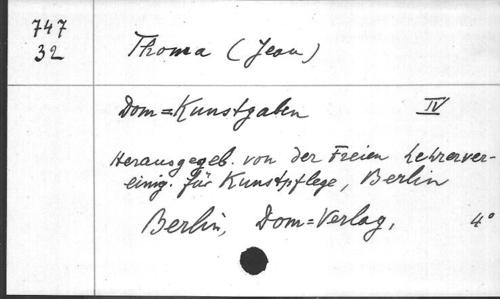 747
32
Thoma (Jean)
Dom=Kunstgaben IV
Herausgegeb. von der Freien Lehrerver-
einig. für Kunstpflege, Berlin
Berlin, Dom=Verlag, 4°